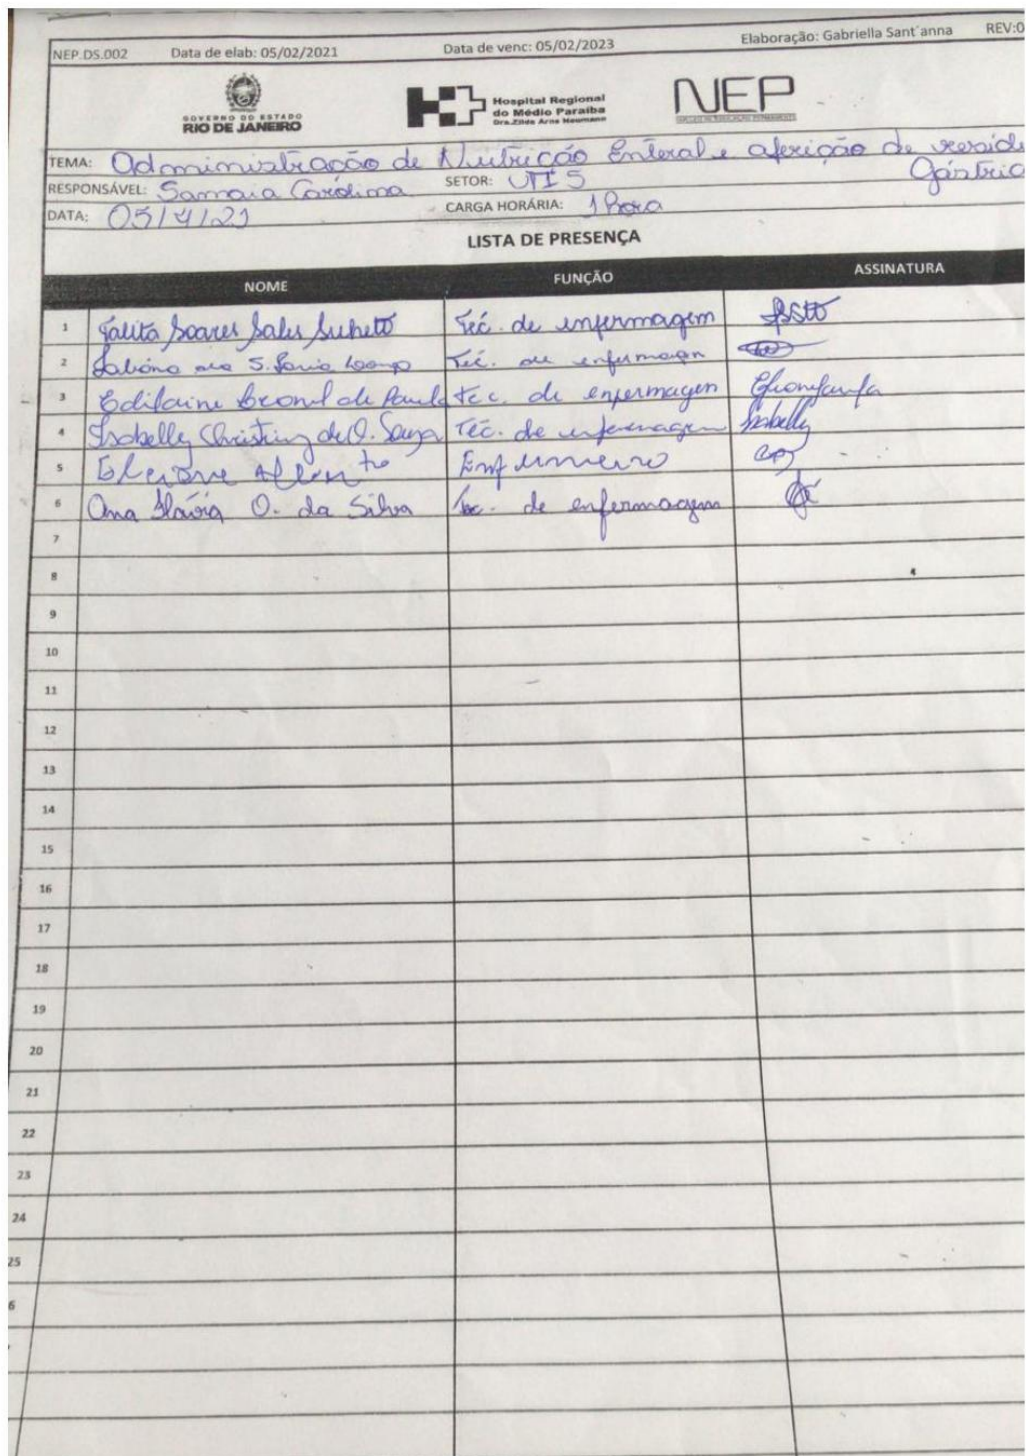 NEP.DS.002 Data de elab: 05/02/2021 Data de venc: 05/02/2023 Elaboração: Gabriella Sant´anna REV:0
GOVERNO DO ESTADO
RIO DE JANEIRO
Hospital Regional
do Médio Paraíba
Dra.Zilda Arns Neumann
NEP
NÚCLEO DE EDUCAÇÃO PERMANENTE
TEMA: Administração de Nutrição Enteral e aferição de resídu
Gástric
RESPONSÁVEL: Samaia Carolima SETOR: UTI 5
DATA: 05/4/21 CARGA HORÁRIA: 1 Hora
LISTA DE PRESENÇA
NOME FUNÇÃO ASSINATURA
1 Talita Soares Sales Tec. de enfermagem
2 S. Tec. de enfermagem
3 Edilaine de Paula tec. de enfermagem
4 Isabelly Christiny de O. Souza Tec. de enfermagem Isabelly
5 Enfermeiro
6 Ana Flávia O. da Silva Tec. de enfermagem
7
8
9
10
11
12
13
14
15
16
17
18
19
20
21
22
23
24
25
6